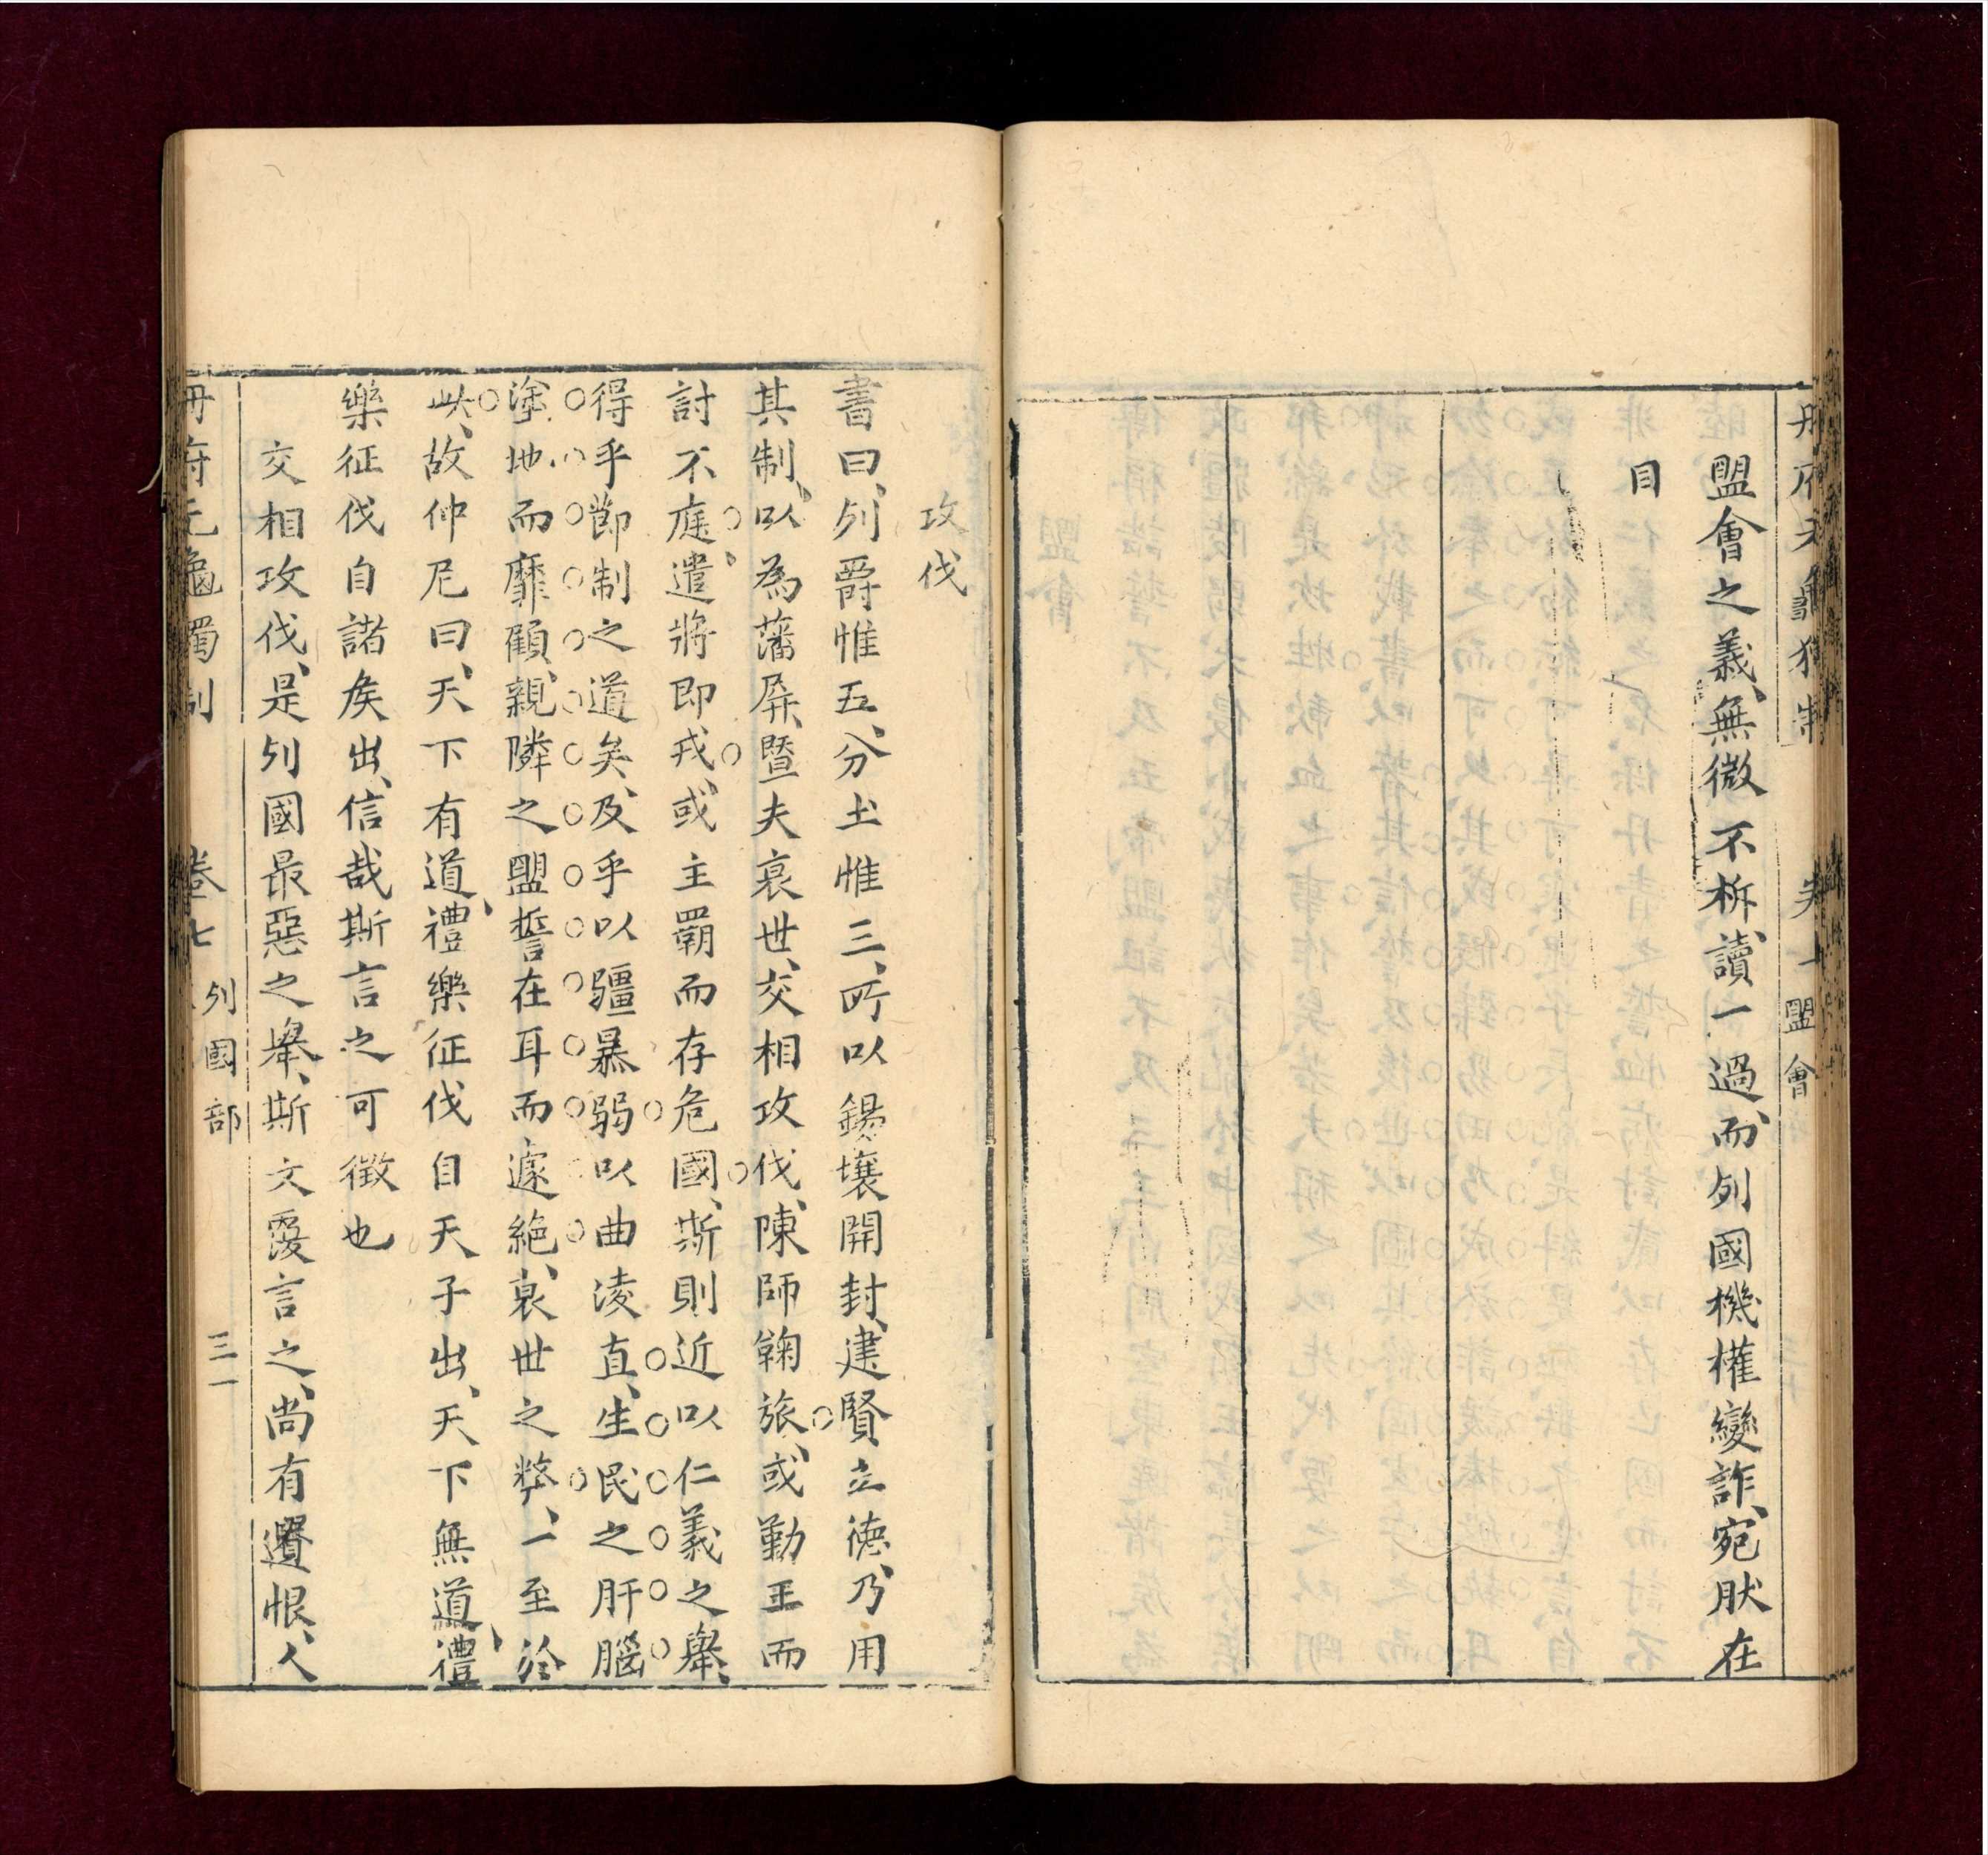 盟會
盟會之義、無微不析、讀一過、而列國機權變詐、宛肰在
目
攻伐
書曰、列爵惟五、分土惟三、所以錫壤開封、建賢立德、乃用
其制、以為藩屏、暨夫衰世、交相攻伐、陳師鞠旅、或勤王而
討不庭、遣將即戎、或主霸而存危國、斯則近以仁義之舉、
得乎節制之道矣、及乎以疆暴弱以曲淩直、生民之肝腦
塗地、而靡顧、親隣之盟誓在耳而遽絕、衰世之弊、一至於
此、故仲尼曰、天下有道、禮樂征伐自天子出、天下無道、禮
樂征伐自諸矦出、信哉斯言之可徴也
交相攻伐、是列國最惡之舉、斯文覈言之、尚有遺恨、人
冊府元龜獨制 卷七 列國部 三一